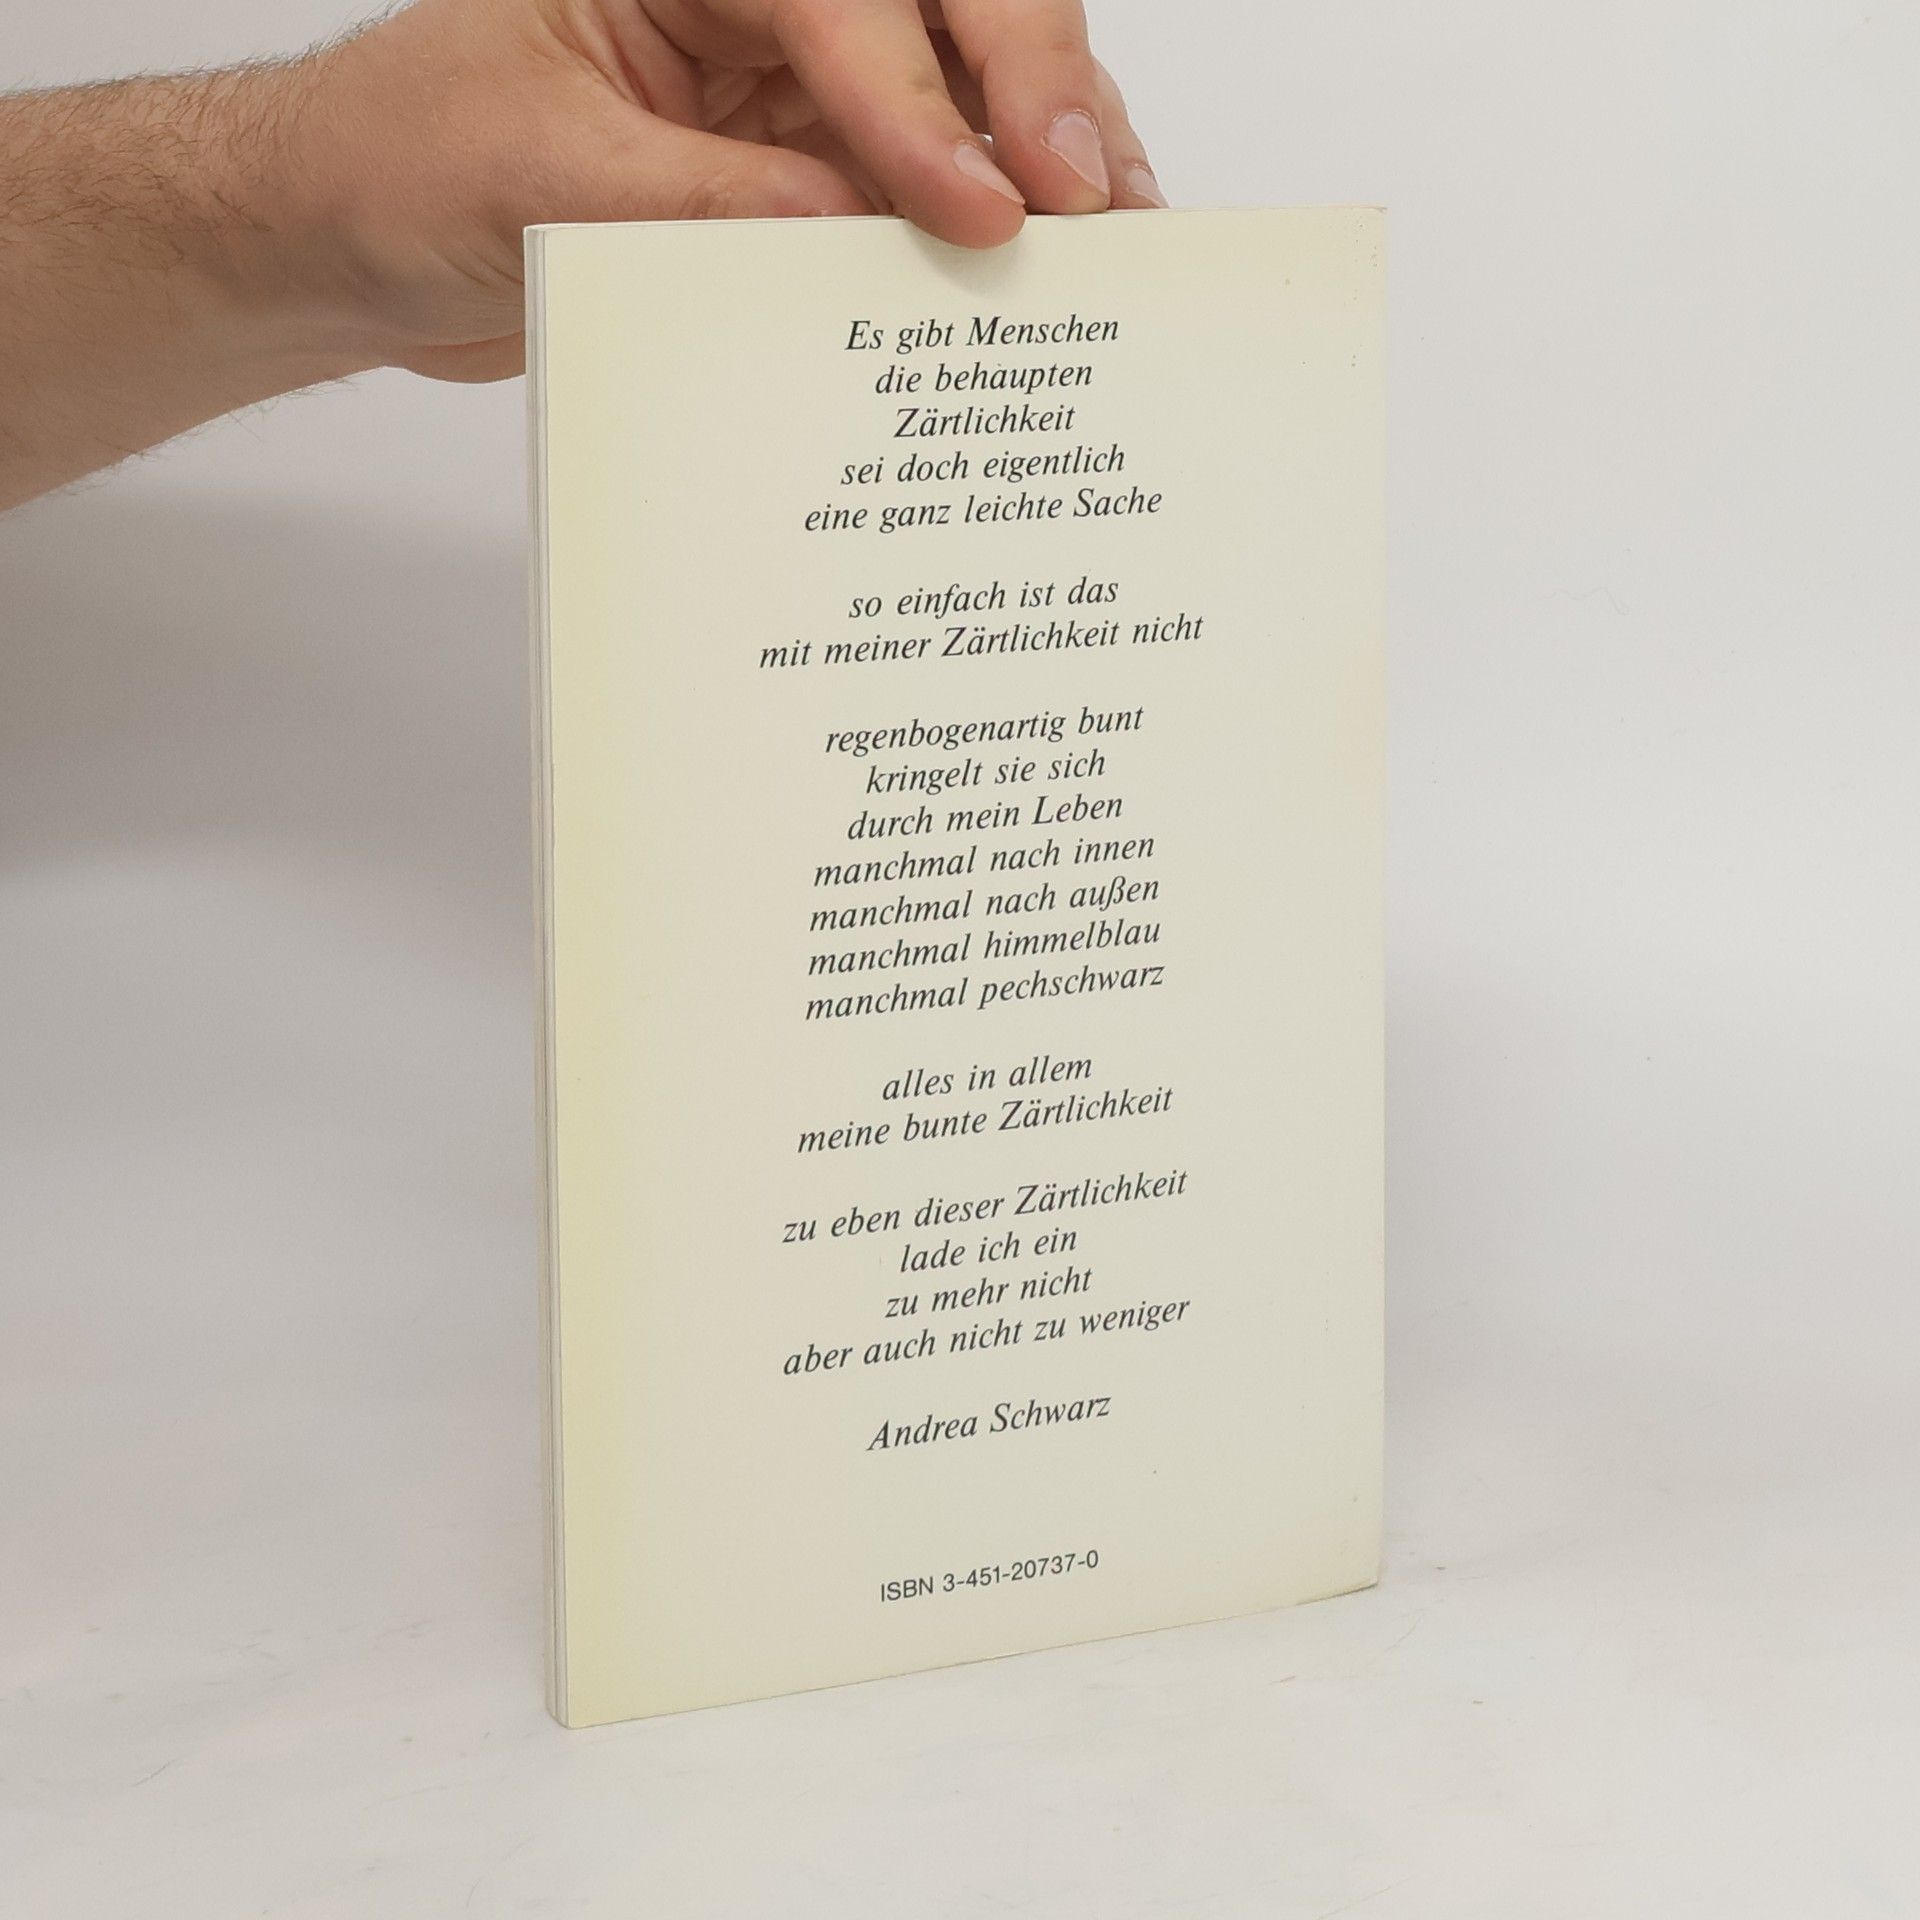 Es gibt Menschen
die behaupten
Zärtlichkeit
sei doch eigentlich
eine ganz leichte Sache
so einfach ist das
mit meiner Zärtlichkeit nicht
regenbogenartig bunt
kringelt sie sich
durch mein Leben
manchmal nach innen
manchmal nach außen
manchmal himmelblau
manchmal pechschwarz
alles in allem
meine bunte Zärtlichkeit
zu eben dieser Zärtlichkeit
lade ich ein
zu mehr nicht
aber auch nicht zu weniger
Andrea Schwarz
ISBN 3-451-20737-0